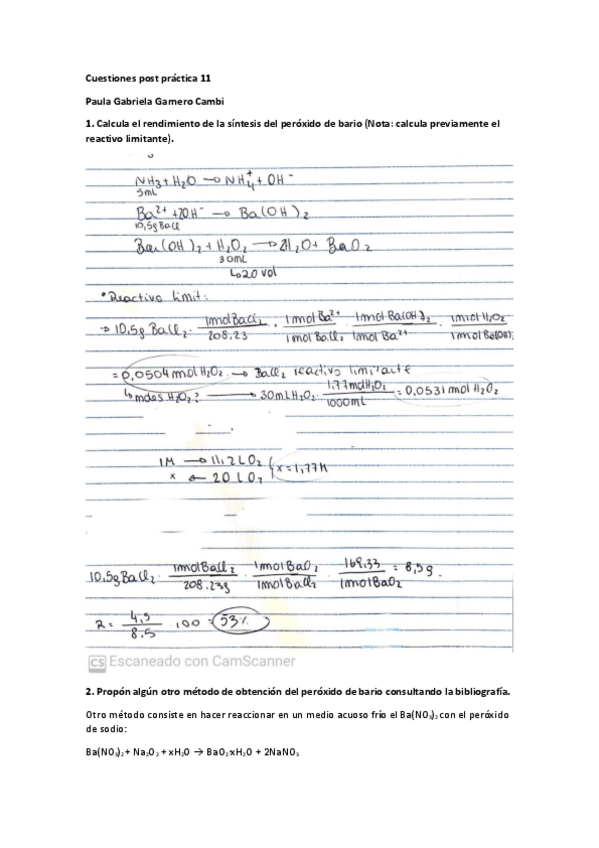 Cuestiones post práctica 11
Paula Gabriela Gamero Cambi
1. Calcula el rendimiento de la síntesis del peróxido de bario (Nota: calcula previamente el
reactivo limitante).
NH₃ + H₂O → NH₄⁺ + OH⁻
5mL
Ba²⁺ + 2OH⁻ → Ba(OH)₂
10,5g BaCl₂
Ba(OH)₂ + H₂O₂ → 2H₂O + BaO₂
30mL
↳ 20 vol
• Reactivo limit:
→ 10,5g BaCl₂ · 1mol BaCl₂/208.23 · 1mol Ba²⁺/1mol BaCl₂ · 1mol Ba(OH)₂/1mol Ba²⁺ · 1mol H₂O₂/1mol Ba(OH)₂
= 0,0504 mol H₂O₂ → BaCl₂ reactivo limitante
↳ moles H₂O₂? → 30mL H₂O₂ · 1,77mol H₂O₂/1000mL = 0,0531 mol H₂O₂
1M → 11,2 L O₂
x ← 20 L O₂ x = 1,77M
10,5g BaCl₂ · 1mol BaCl₂/208.23g · 1mol BaO₂/1mol BaCl₂ · 169.33/1mol BaO₂ = 8,5g.
R = 4,5/8.5 · 100 = 53%
CS Escaneado con CamScanner
2. Propón algún otro método de obtención del peróxido de bario consultando la bibliografía.
Otro método consiste en hacer reaccionar en un medio acuoso frío el Ba(NO₃)₂ con el peróxido
de sodio:
Ba(NO₃)₂ + Na₂O₂ + xH₂O → BaO₂·xH₂O + 2NaNO₃